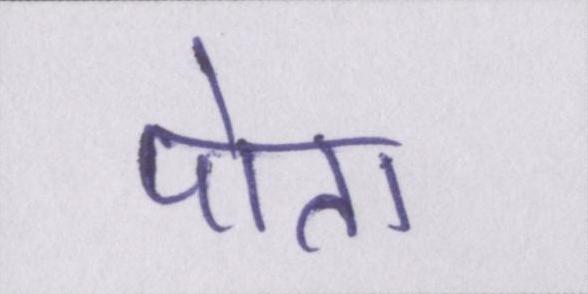 पोता